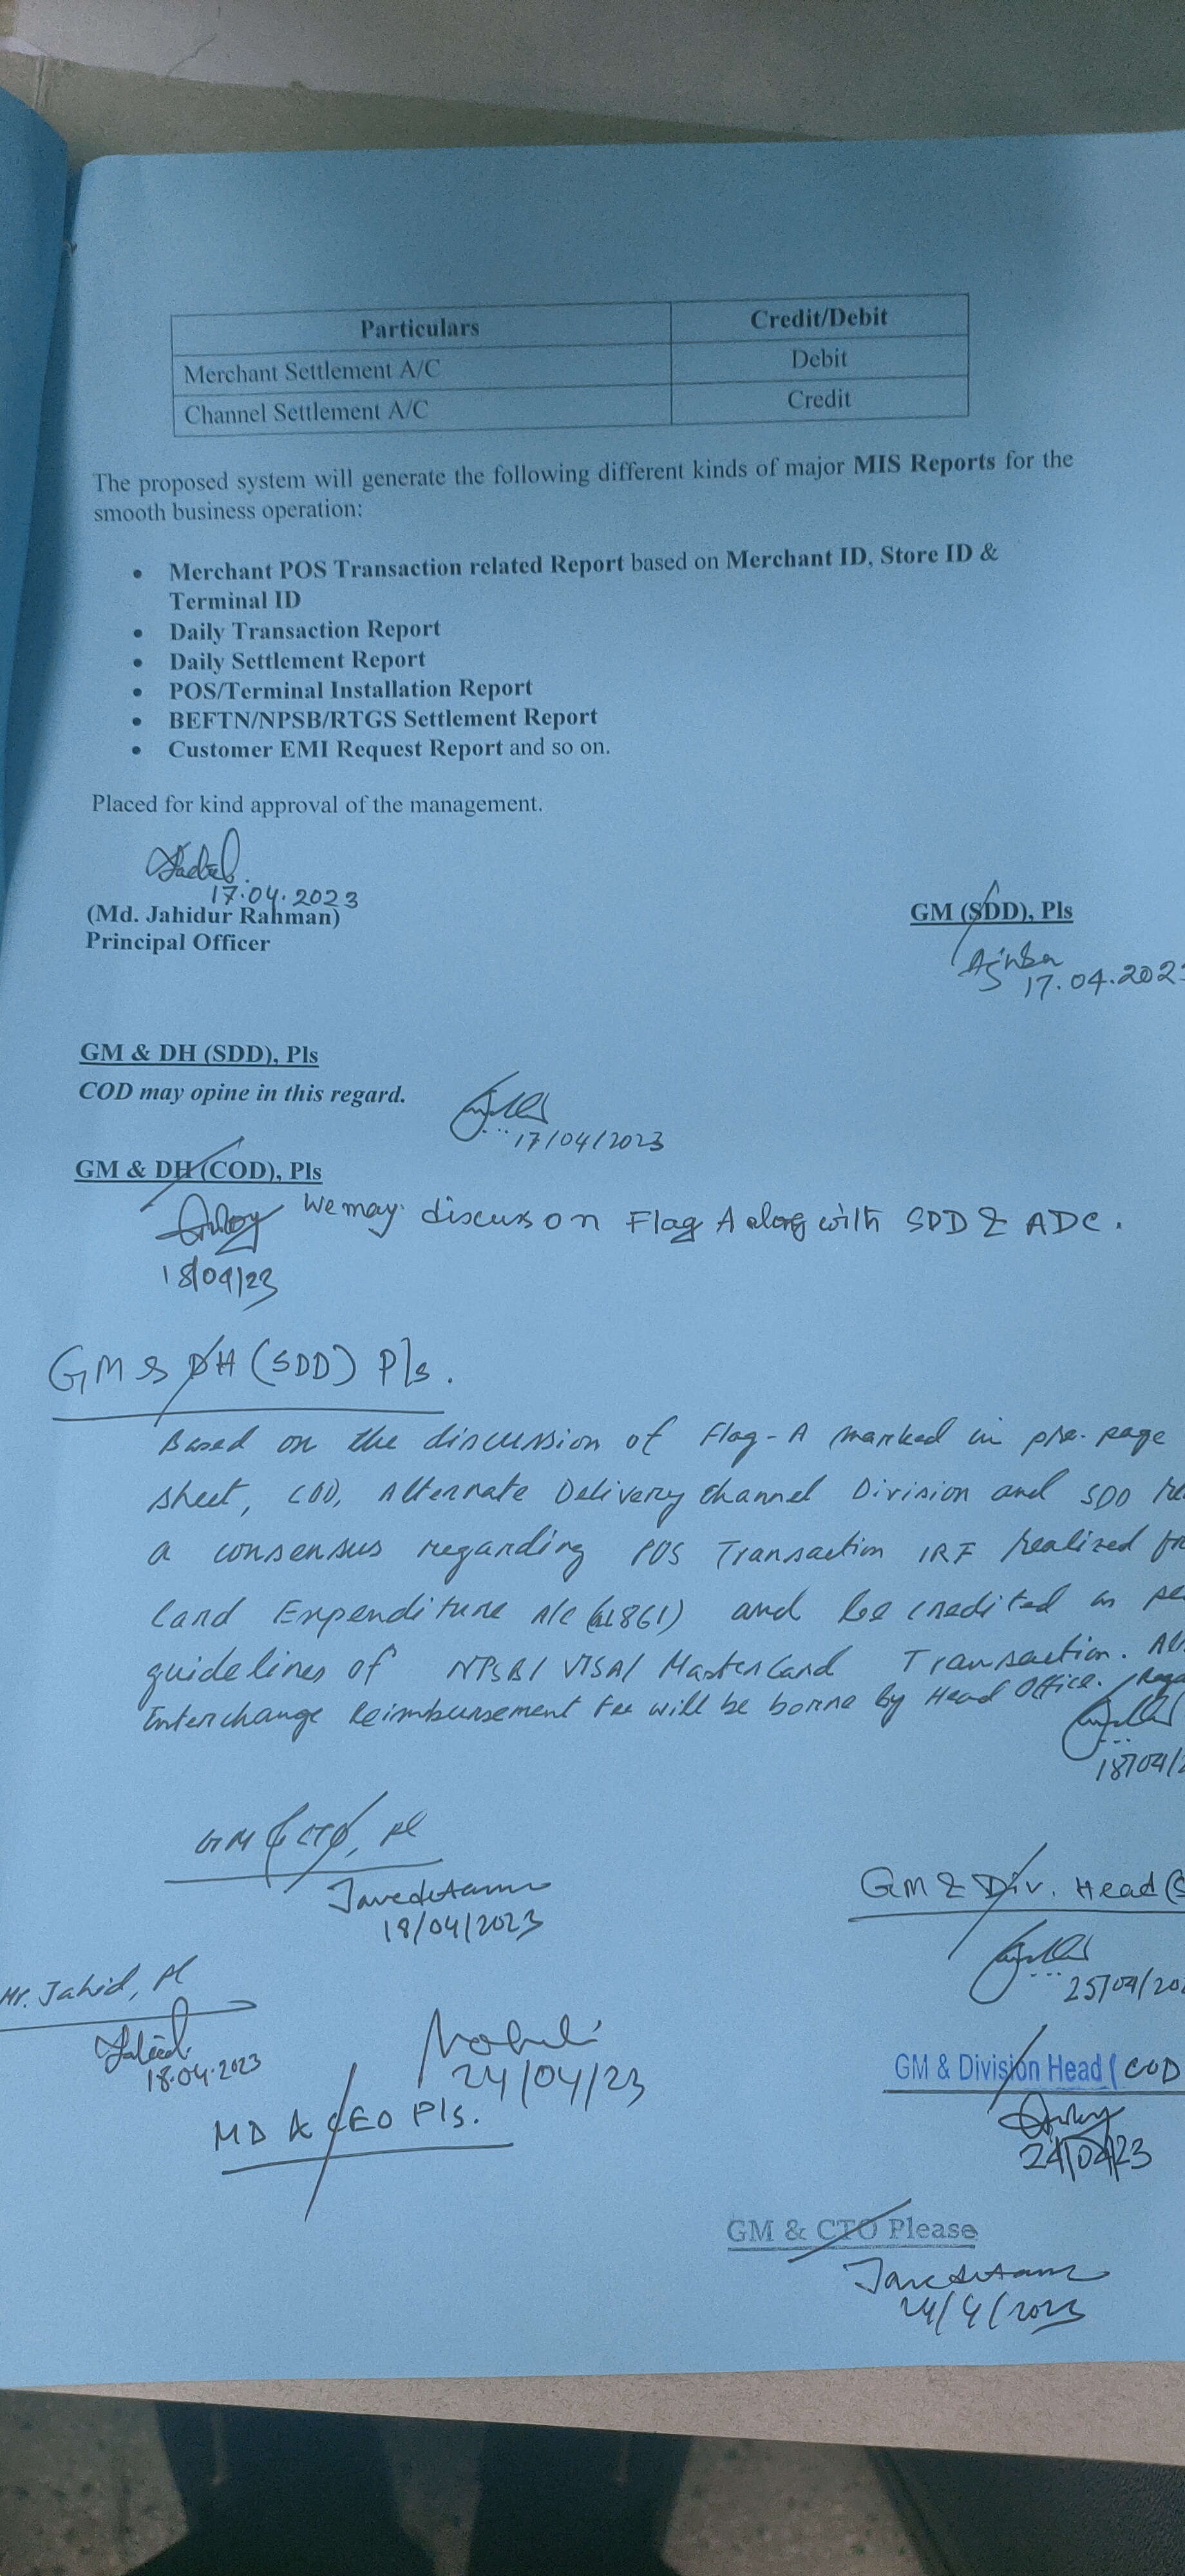 Particulars Credit/Debit
Merchant Settlement A/C Debit
Channel Settlement A/C Credit
The proposed system will generate the following different kinds of major MIS Reports for the
smooth business operation:
• Merchant POS Transaction related Report based on Merchant ID, Store ID &
Terminal ID
• Daily Transaction Report
• Daily Settlement Report
• POS/Terminal Installation Report
• BEFTN/NPSB/RTGS Settlement Report
• Customer EMI Request Report and so on.
Placed for kind approval of the management.
17.04.2023
(Md. Jahidur Rahman)
Principal Officer
GM (SDD), Pls
17.04.202
GM & DH (SDD), Pls
COD may opine in this regard.
17/04/2023
GM & DH (COD), Pls
We may discuss on Flag A along with SDD & ADC.
18/04/23
GM & DH (SDD) Pls.
Based on the discussion of Flag-A marked in pre-page
sheet, COD, Alternate Delivery Channel Division and SDD
a consensus regarding POS Transaction IRF realized
Card Expenditure A/C and be credited as
guidelines of NPSB/ VISA/ MasterCard Transaction.
Interchange Reimbursement Fee will be borne by Head Office.
18/04/2
GM & CTO, Pl
18/04/2023
GM & Div. Head (S
25/04/202
Mr. Jahid, Pl
18.04.2023
24/04/23
MD & CEO Pls.
GM & Division Head ( COD
24/04/23
GM & CTO Please
24/4/2023